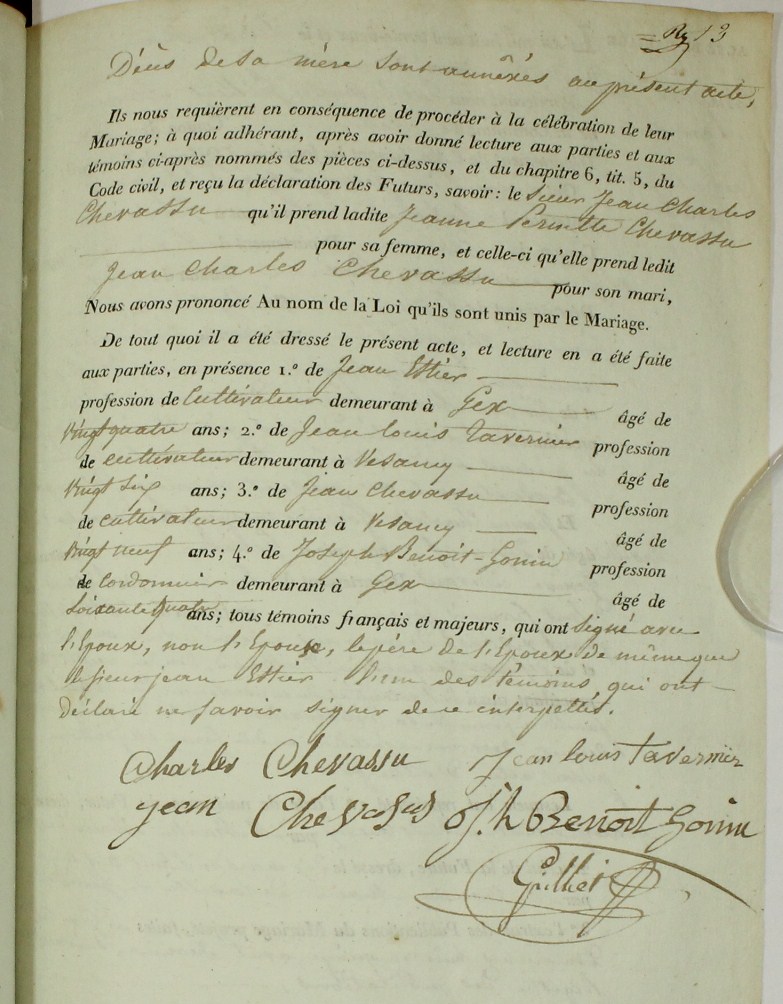 13
Décès de sa mère sont annexés au présent acte,
Ils nous requièrent en conséquence de procéder à la célébration de leur
Mariage; à quoi adhérant, après avoir donné lecture aux parties et aux
témoins ci-après nommés des pièces ci-dessus, et du chapitre 6, tit. 5, du
Code civil, et reçu la déclaration des Futurs, savoir: le Sieur Jean Charles
Chevassu qu'il prend ladite Jeanne Pernette Chevassu
pour sa femme, et celle-ci qu'elle prend ledit
Jean Charles Chevassu pour son mari,
Nous avons prononcé Au nom de la Loi qu'ils sont unis par le Mariage.
De tout quoi il a été dressé le présent acte, et lecture en a été faite
aux parties, en présence 1.º de Jean Ethier
profession de Cultivateur demeurant à Gex âgé de
Vingt quatre ans; 2.º de Jean Louis Tavernier profession
de cultivateur demeurant à Vesancy âgé de
Vingt Six ans; 3.º de Jean Chevassu profession
de cultivateur demeurant à Vesancy âgé de
Vingt neuf ans; 4.º de Joseph Benoit-Gonin profession
de Cordonnier demeurant à Gex âgé de
Soixante quatre ans; tous témoins français et majeurs, qui ont Signé avec
l'Epoux, non l'Epouse, le père de l'Epoux de même que
le sieur jean Ethier l'un des témoins, qui ont
déclaré ne savoir signer de ce interpellés.
Charles Chevassu Jean Louis Tavernier
jean Chevassus J.h Benoit Gonin